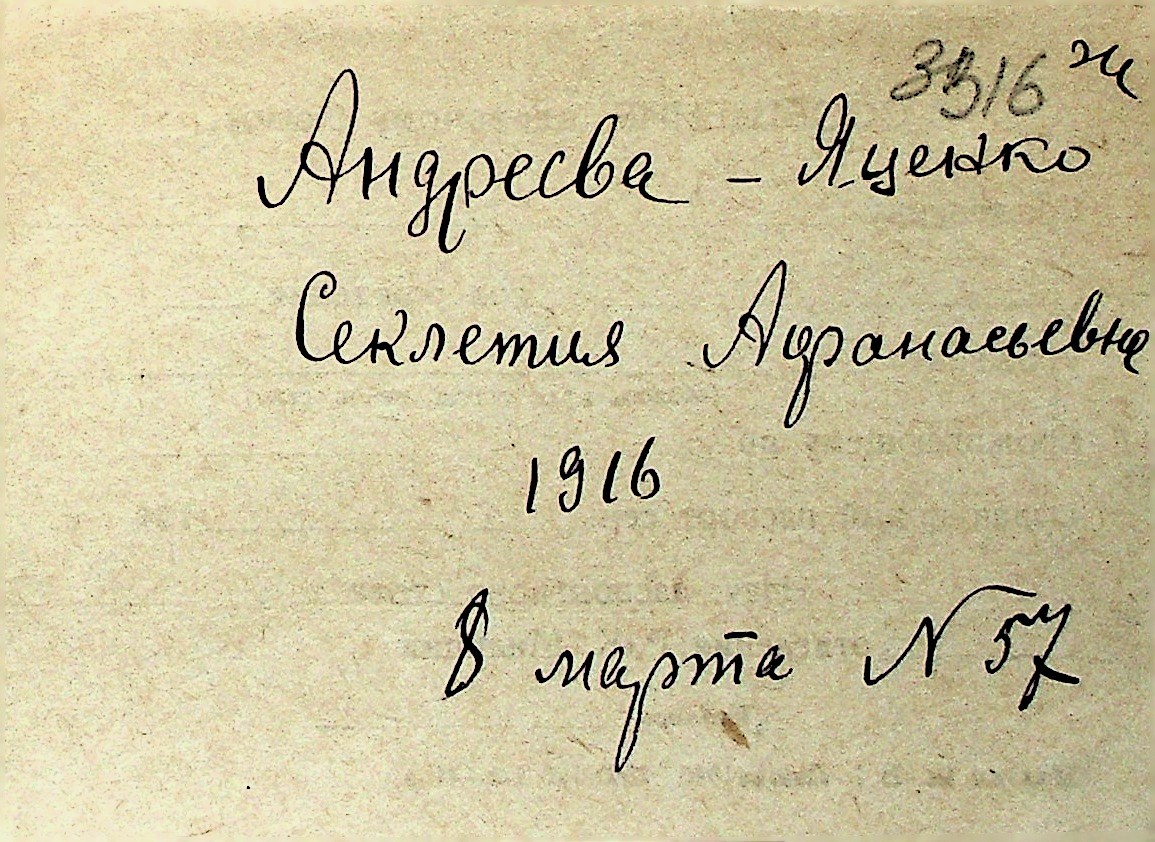 3316 ж
Андреева - Яценко
Секлетия Афанасьевна
1916
8 марта N 57